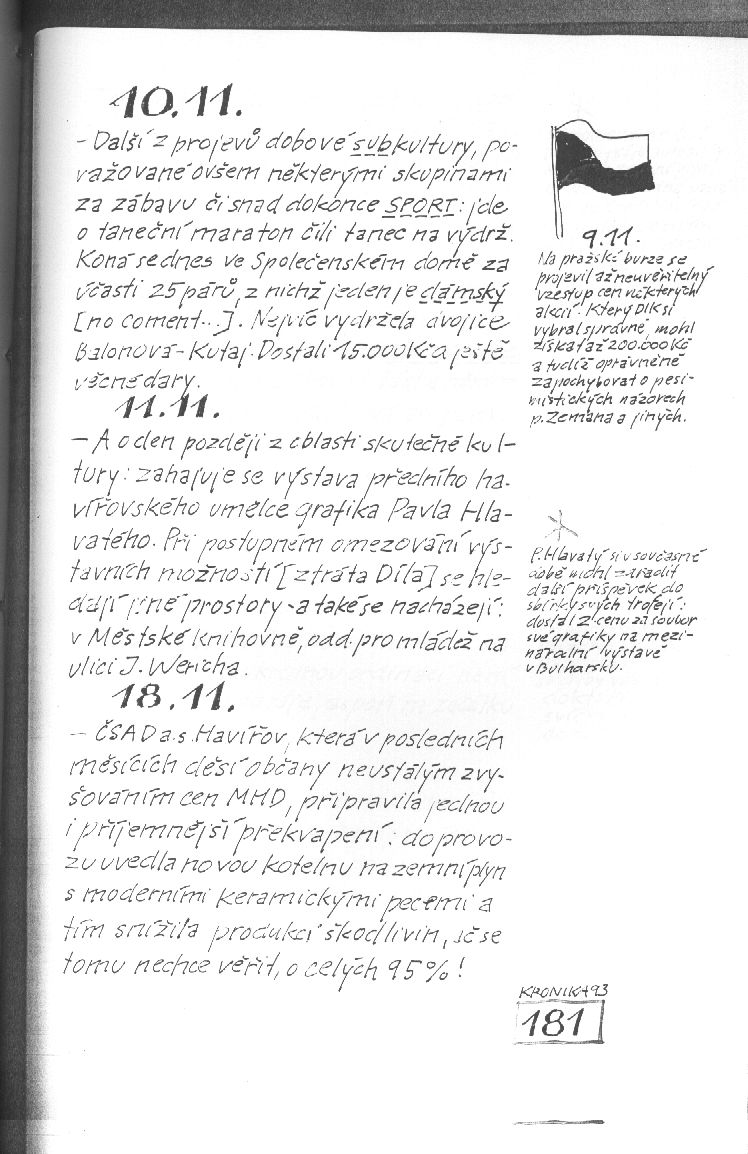 10.11.
- Další z projevů dobové subkultury, po-
važované ovšem některými skupinami
za zábavu či snad dokonce SPORT: jde
o taneční maraton čili tanec na výdrž.
Koná se dnes ve Společenském domě za
účasti 25 párů, z nichž jeden je dámský
[no coment...]. Nejvíc vydržela dvojice
Balonová - Kutaj. Dostali 15.000 Kč a ještě
věcné dary.
11.11.
- A o den později z oblasti skutečné kul-
tury: zahajuje se výstava předního ha-
vířovského umělce grafika Pavla Hla-
vatého. Při postupném omezování výs-
tavních možností [ztráta Díla] se hle-
dají jiné prostory - a také se nacházejí:
v Městské knihovně, odd. pro mládež na
ulici J. Wericha.
18.11.
- ČSAD a.s. Havířov, která v posledních
měsících děsí občany neustálým zvy-
šováním cen MHD, připravila jednou
i příjemnější překvapení: do provo-
zu uvedla novou kotelnu na zemní plyn
s moderními keramickými pecemi a
tím snížila produkci škodlivin, ač se
tomu nechce věřit, o celých 95%!
9.11.
Na pražské burze se
projevil až neuvěřitelný
vzestup cen některých
akcií. Který DIK si
vybral správně, mohl
získat až 200.000 Kč
a tudíž oprávněně
zapochybovat o pesi-
mistických názorech
p. Zemana a jiných.
P. Hlavatý si v současné
době mohl zařadit
další příspěvek do
sbírky svých trofejí:
dostal 2. cenu za soubor
své grafiky na mezi-
národní výstavě
v Bulharsku.
KRONIKA 93
181